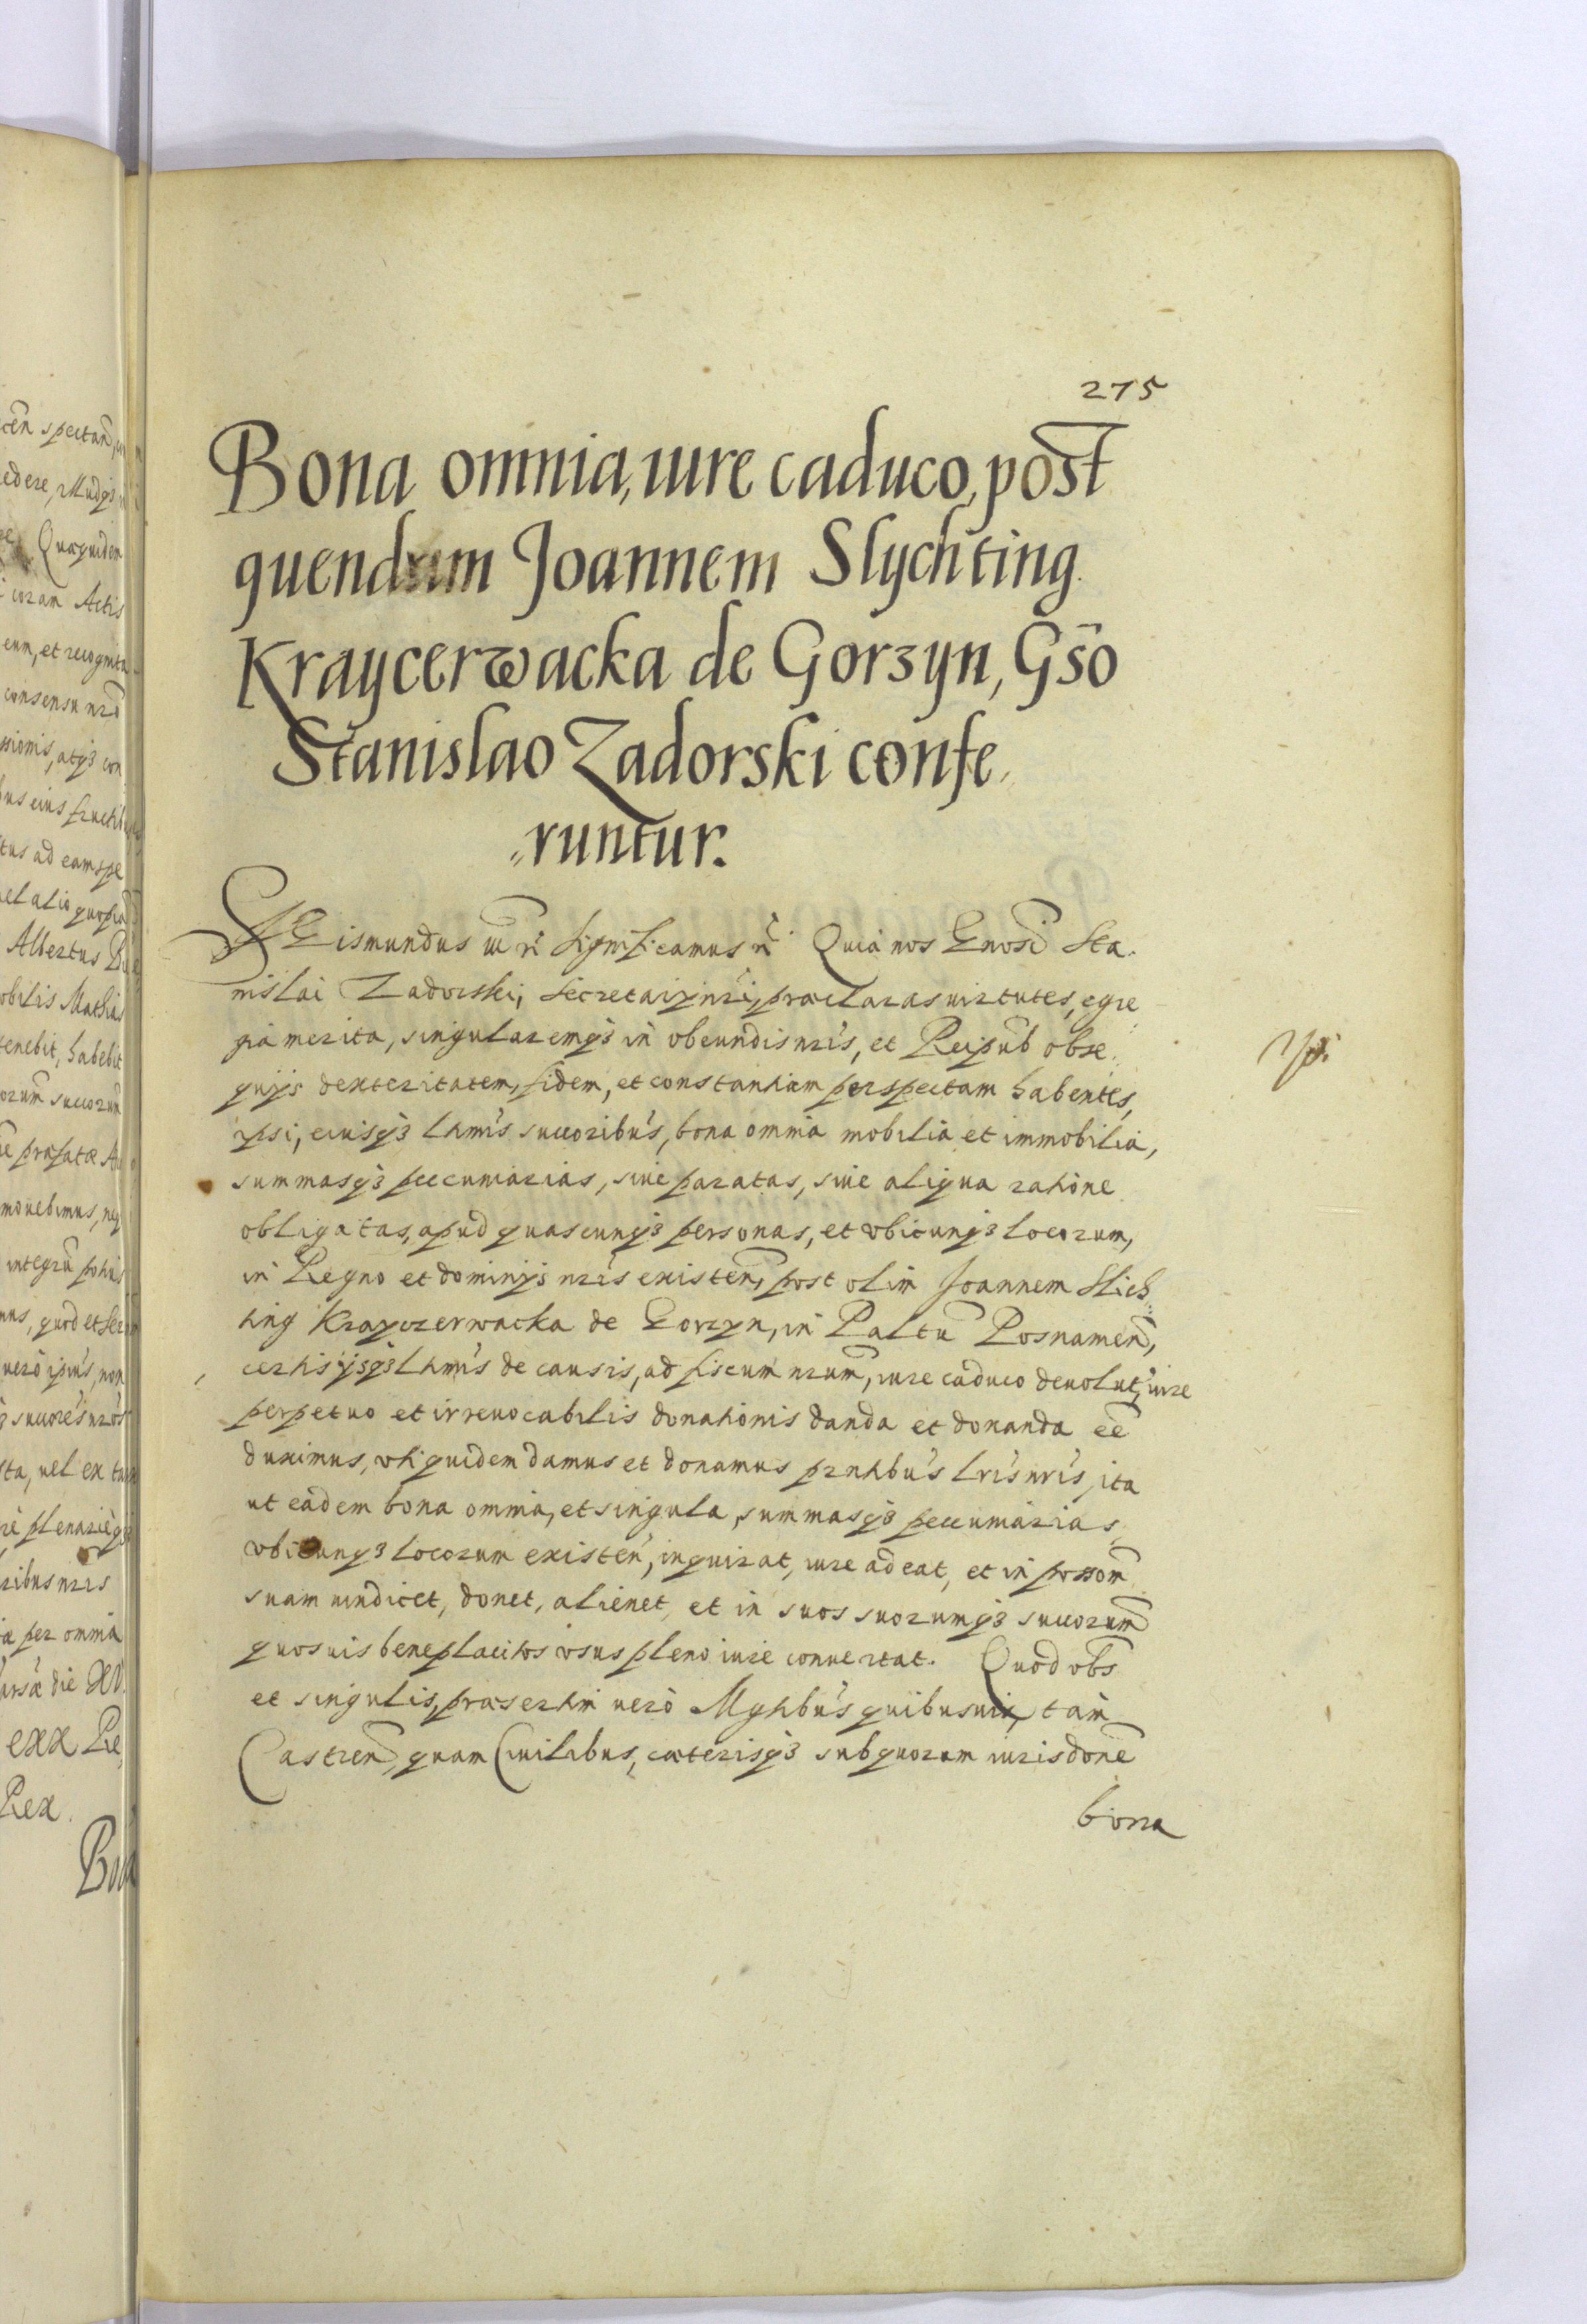 275
Bona omnia, iure caduco, post
quendam Joannem Slychting
Kraycerwacka de Gorzyn, Gso
Stanislao Zadorski confe,
„runtur.
Sigismundus etc. Significamus etc. Quia nos Gnosi Sta.
nislai Zadorski, secretarij nri, praeclaras uirtutes, egre
gia merita, singularemqз in obeundis nris, et Reipub obse.
quijs dexteritatem, fidem, et constantiam perspectam habentes,
ipsi, eiusqз ltimis succoribus, bona omnia mobilia et immobilia,
summasqз peccuniarias, siue paratas, siue aliqua ratione
obligatas, apud quascunqз personas, et vbicunqз locorum,
in Regno et dominijs nris existen, post olim Joannem Slich
ting Krayczerwacka de Gorzyn, in Paltu Posnamen,
certis ijsqз ltimis de causis, ad fiscum nrum, iure caduco deuolut, iure
perpetuo et irreuocabilis donationis danda et donanda ee
duximus, vti quidem damus et donamus pntibus lris nris, ita
ut eadem bona omnia, et singula, summasqз peccuniarias
vbicunqз locorum existen, inquirat, iure adeat, et in possom
suam uindicet, donet, alienet, et in suos suorumqз succorum
quosuis beneplacitos vsus pleno iure conuertat. Quod obs
et singulis, praesertim uero Mgtibus quibusuis, tam
Castren, quam Ciuilibus, caeterisqз sub quorum iurisdone
bona
cen spectan
edere,
Quaquidem
coram Actis
eum, et recognita
consensu nro
ssionis, atqз con
us eius fructib
tus ad eam spe
uel alio quopia
Albertus
obilis Mathias
tenebit, habebit
orum succorum
praefatae
mouebimus, neqз
integru potius
mus, quod et
uero ipius, non
succores nros
sta, uel ex
plenarieqз
ribus nris
per omnia
die XV.
exx Re
Rex.